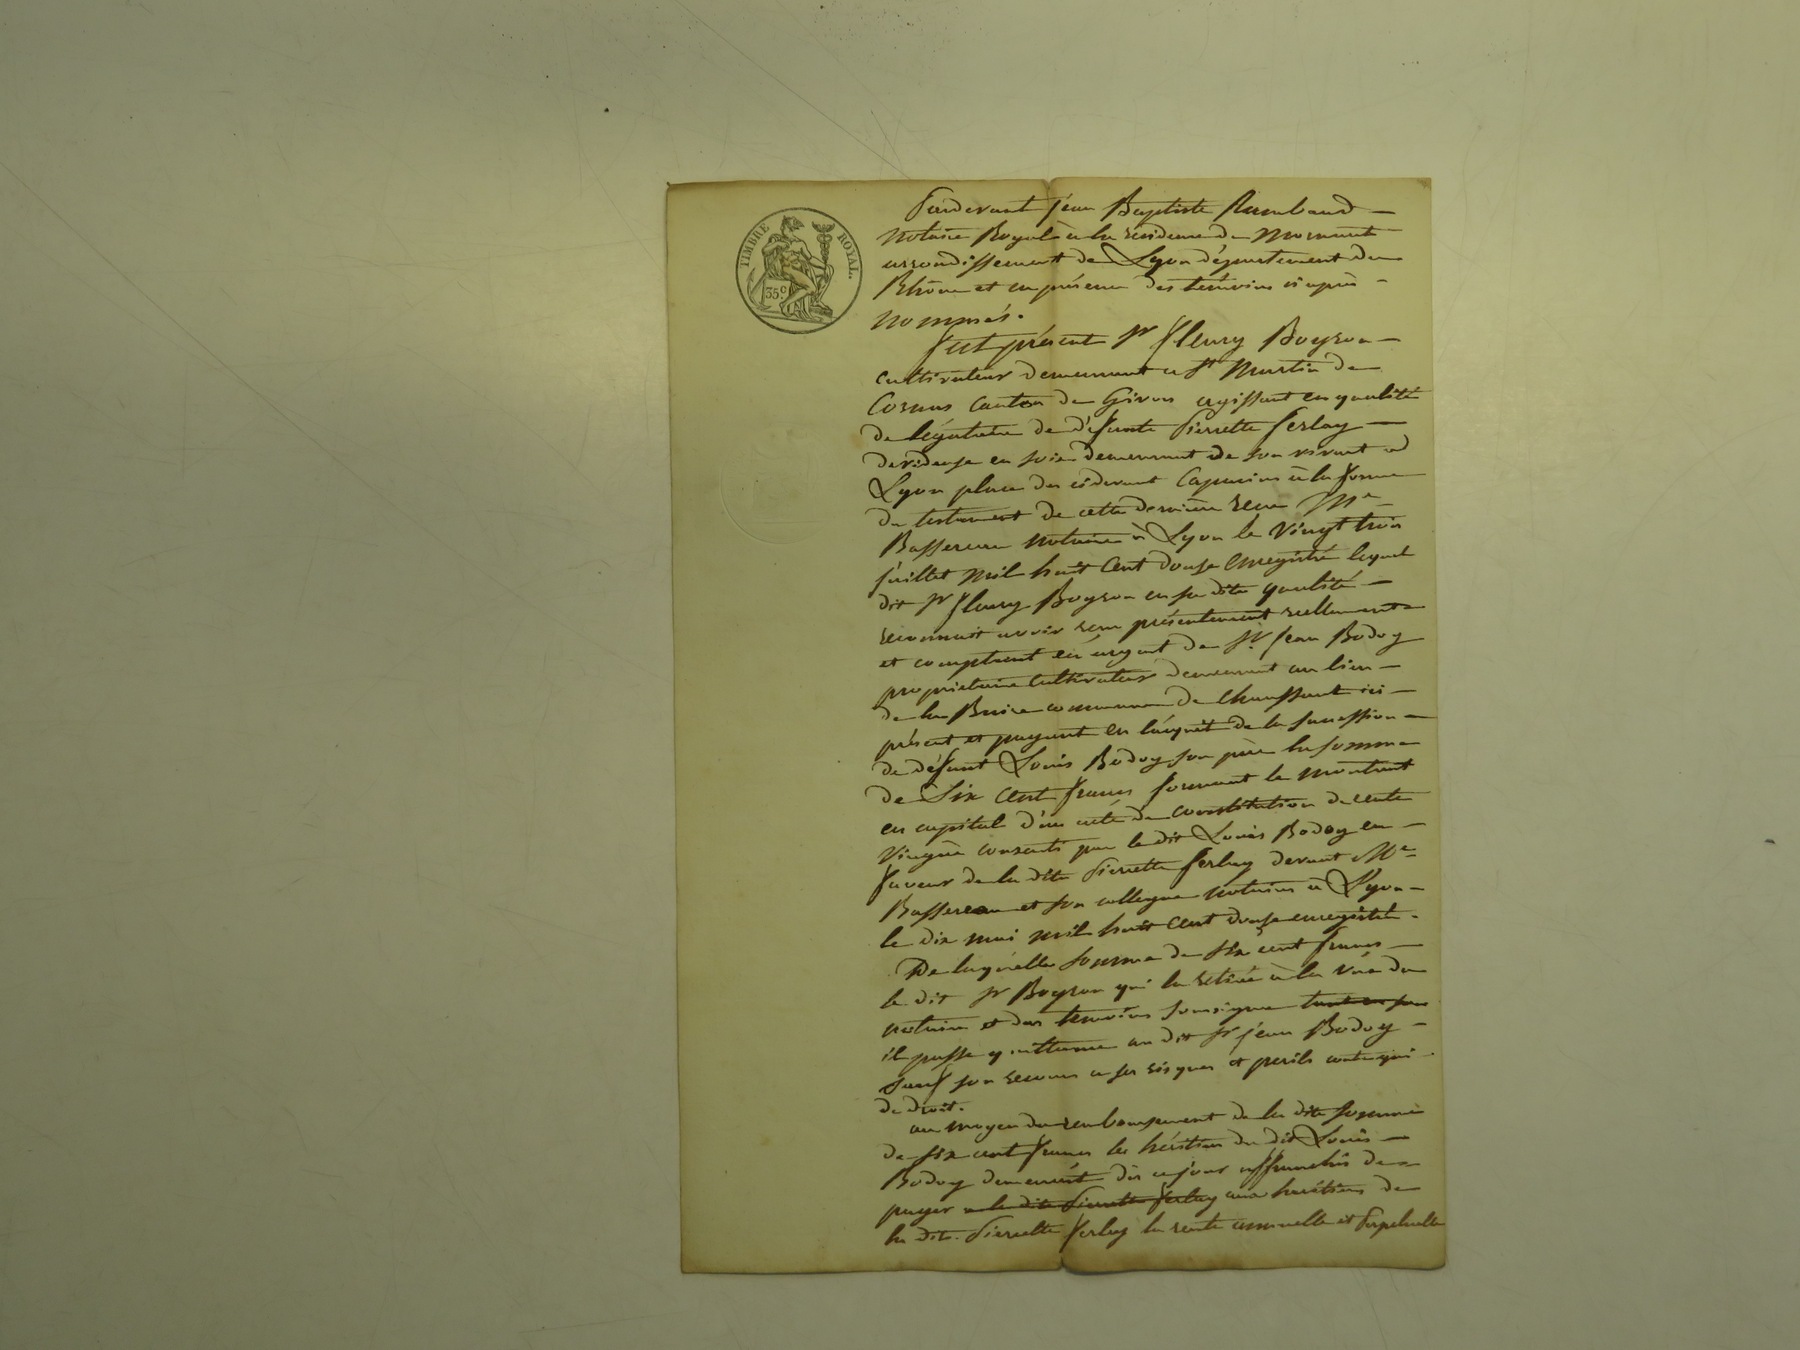 TIMBRE ROYAL.
35c
Pardevant jean Baptiste Rambaud
Notaire Royal à la residence de Mornant
arrondissement de Lyon département du
Rhône et en présence des témoins ci après
nommés.
fut présent Sr fleury Boyron
cultivateur demeurant a St Martin de
Cornas Canton de Givors agissant en qualité
de légataire de défunte Pierrette ferlay
devideuse en soie demeurant de son vivant a
Lyon place des cidevant Capucins à la forme
du testament de cette dernière reçu Me
Bassereau Notaire à Lyon le Vingt trois
juillet mil huit Cent douse enregistré lequel
dit Sr fleury Boyron en sa dite qualité
reconnait avoir reçu présentement reellement
et comptant en argent de Sr. jean Bodoy
propriétaire Cultivateur demeurant au lieu
de la commune de Chaussant ici
présent et payant en l'acquit de la succession
de défunt Louis Bodoy son père la somme
de Six Cent francs formant le montant
en capital d'un acte de constitution de rente
Viagère consenti par le dit Louis Bodoy en
faveur de la dite Pierrette ferlay devant Me
Bassereau et son collegue notaires à Lyon
le dix mai mil huit Cent douse enregistré.
De laquelle somme de six cent francs
le dit Sr Boyron qui la retirée à la vue du
notaire et des temoins soussigne
il passe quittance au dit Sr jean Bodoy
sauf son recours a ses risques et perils contre qui
de droit.
au moyen du remboursement de la dite somme
de six cent francs les héritiers du dit Louis
Bodoy demeurent dès ce jour affranchis de
payer a la dite Pierrette ferlay aux heritiers de
la dite Pierrette ferlay la rente annuelle et perpetuelle